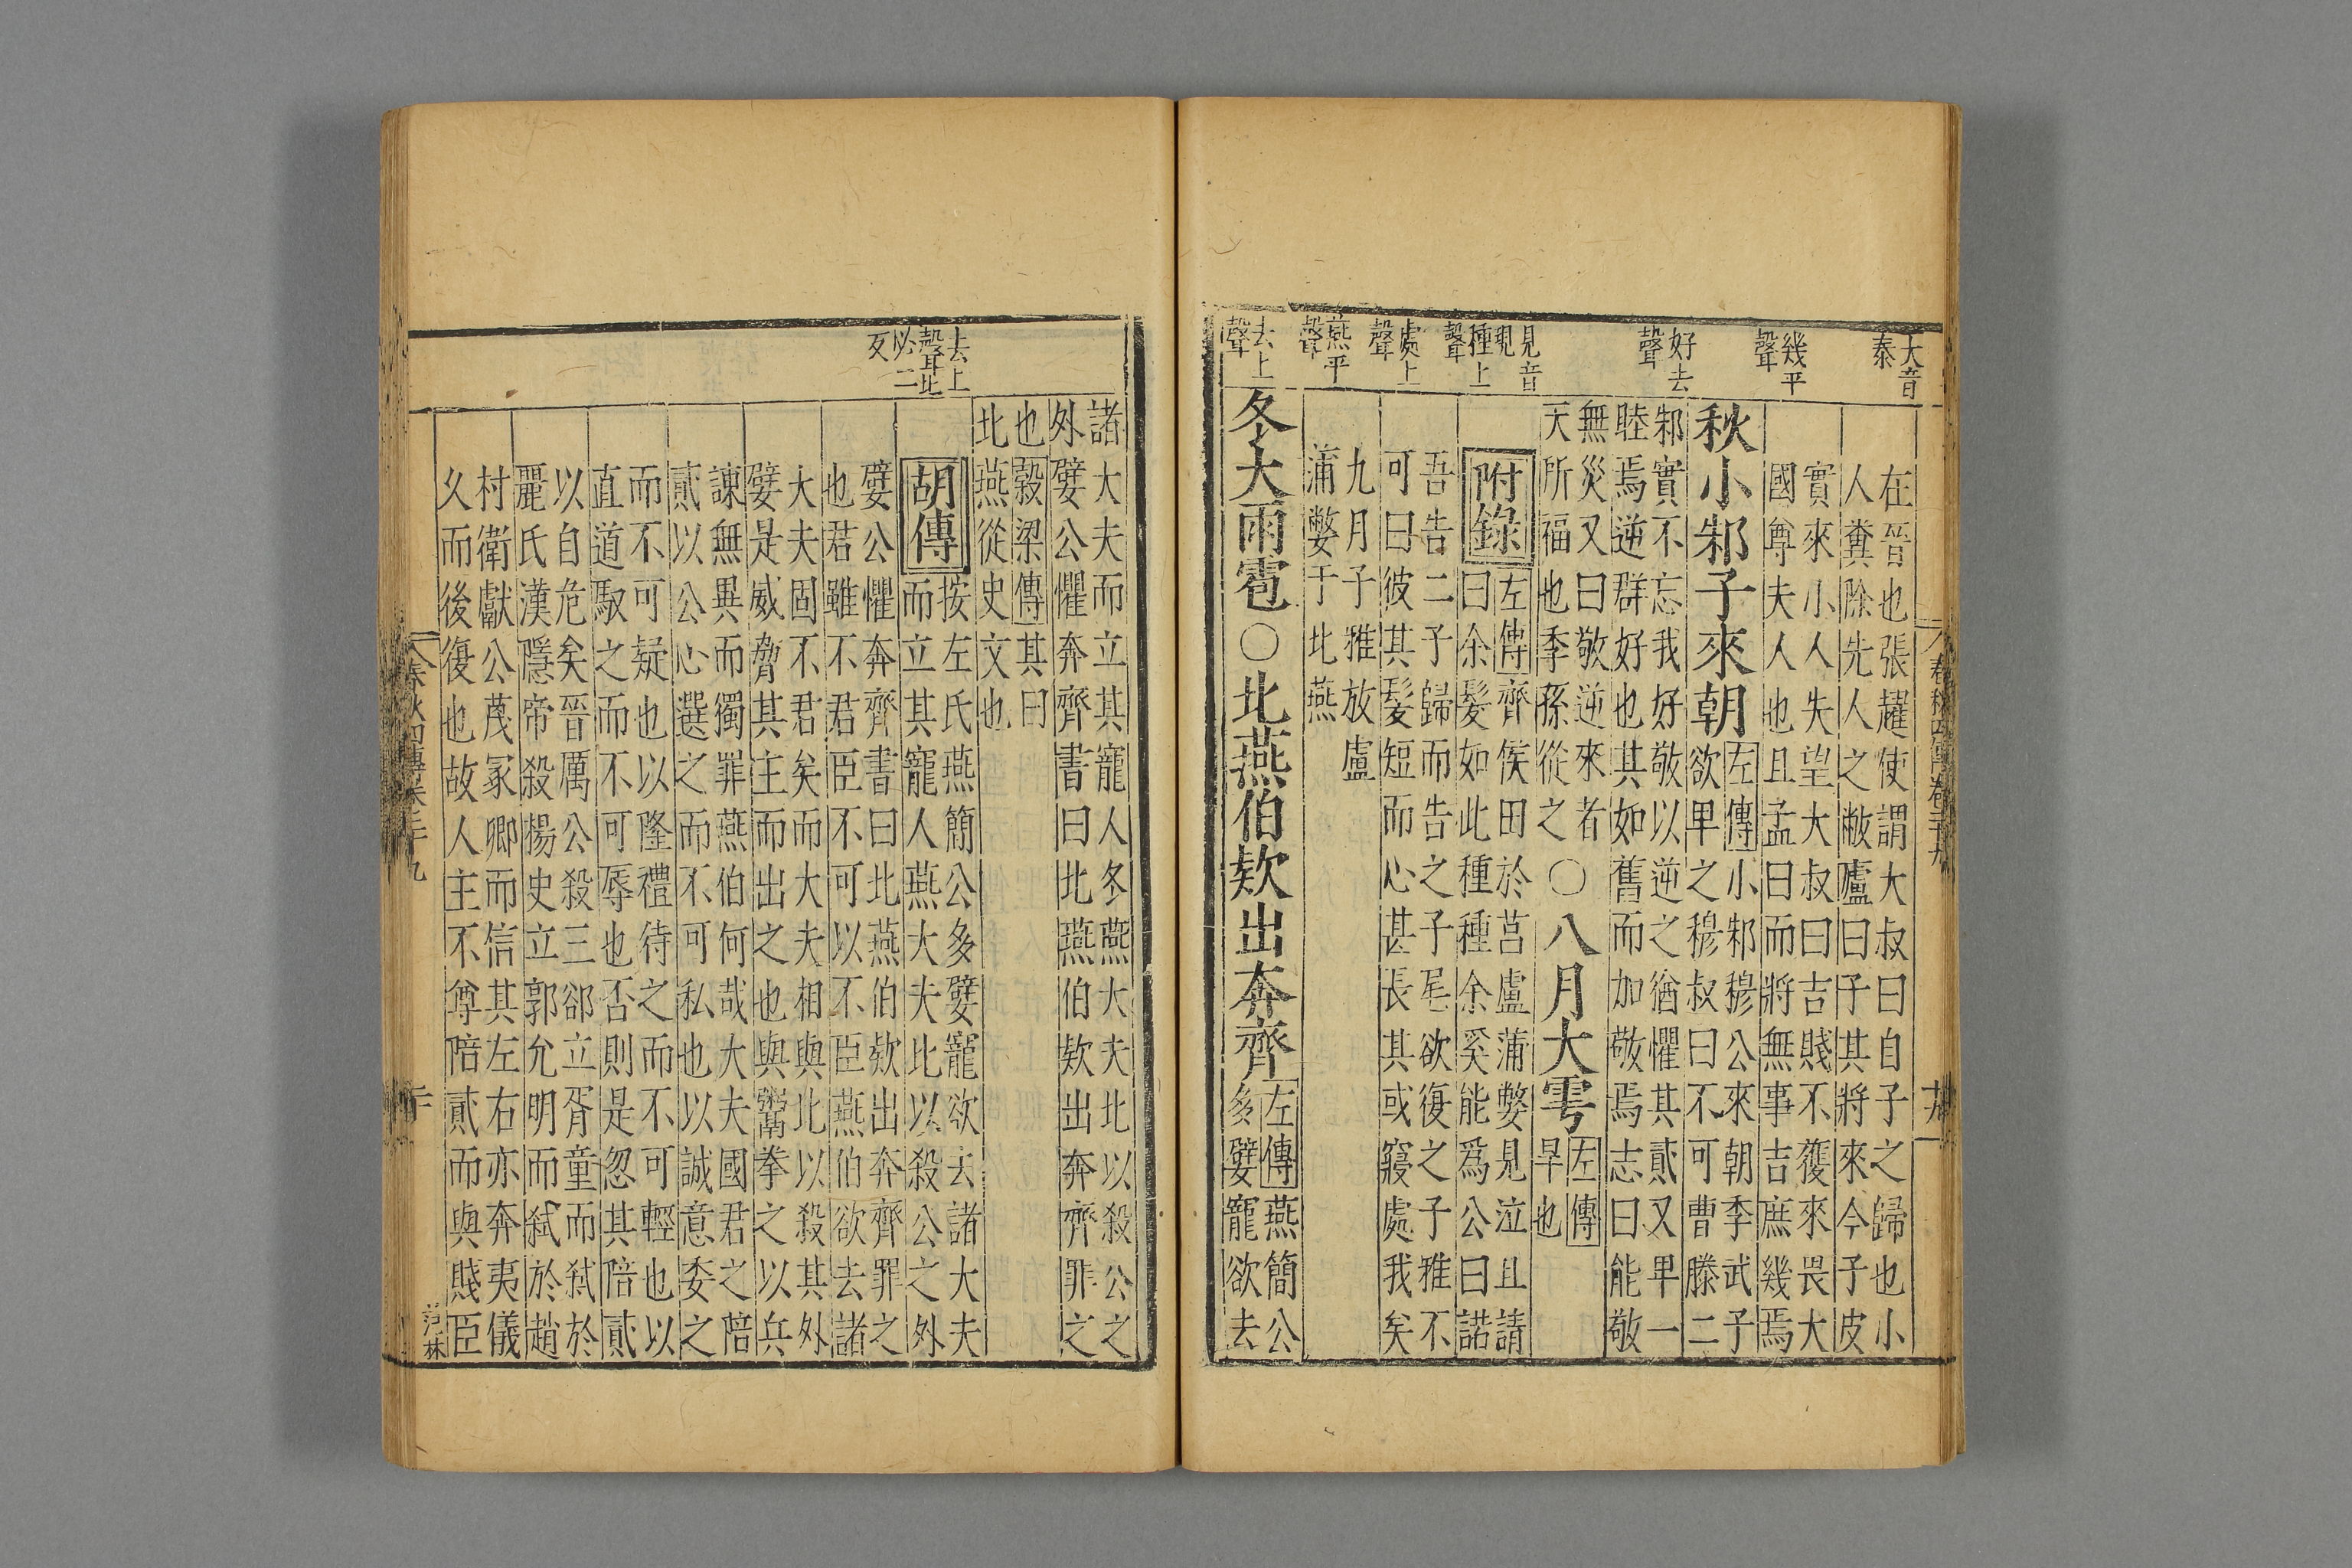 大音
泰
幾平
聲
好去
聲
見音
現
種上
聲
處上
聲
燕平
聲
去上
聲
在晉也張趯使謂大叔曰自子之歸也小
人糞除先人之敝廬曰子其將來今子皮
實來小人失望大叔曰吉賤不獲來畏大
國尊夫人也且孟曰而將無事吉庶幾焉
秋小邾子來朝
左傳小邾穆公來朝季武子
欲卑之穆叔曰不可曹滕二
邾實不忘我好敬以逆之猶懼其貳又卑一
睦焉逆群好也其如舊而加敬焉志曰能敬
無災又曰敬逆來者
天所福也季孫從之
○八月大雩
左傳
旱也
附錄
左傳齊侯田於莒盧蒲嫳見泣且請
曰余髮如此種種余奚能爲公曰諾
吾告二子歸而告之子尾欲復之子雅不
可曰彼其髮短而心甚長其或寢處我矣
九月子雅放盧
蒲嫳于北燕
冬大雨雹○北燕伯欵出奔齊
左傳燕簡公
多嬖寵欲去
去上
聲比
必二
反
諸大夫而立其寵人冬燕大夫比以殺公之
外嬖公懼奔齊書曰北燕伯欵出奔齊罪之
也穀梁傳其曰
北燕從史文也
胡傳
按左氏燕簡公多嬖寵欲去諸大夫
而立其寵人燕大夫比以殺公之外
嬖公懼奔齊書曰北燕伯欵出奔齊罪之
也君雖不君臣不可以不臣燕伯欲去諸
大夫固不君矣而大夫相與比以殺其外
嬖是威脅其主而出之也與鬻拳之以兵
諫無異而獨罪燕伯何哉大夫國君之陪
貳以公心選之而不可私也以誠意委之
而不可疑也以隆禮待之而不可輕也以
直道馭之而不可辱也否則是忽其陪貳
以自危矣晉厲公殺三郤立胥童而弑於
麗氏漢隱帝殺楊史立郭允明而弑於趙
村衛獻公蔑冢卿而信其左右亦奔夷儀
久而後復也故人主不尊陪貳而與賤臣